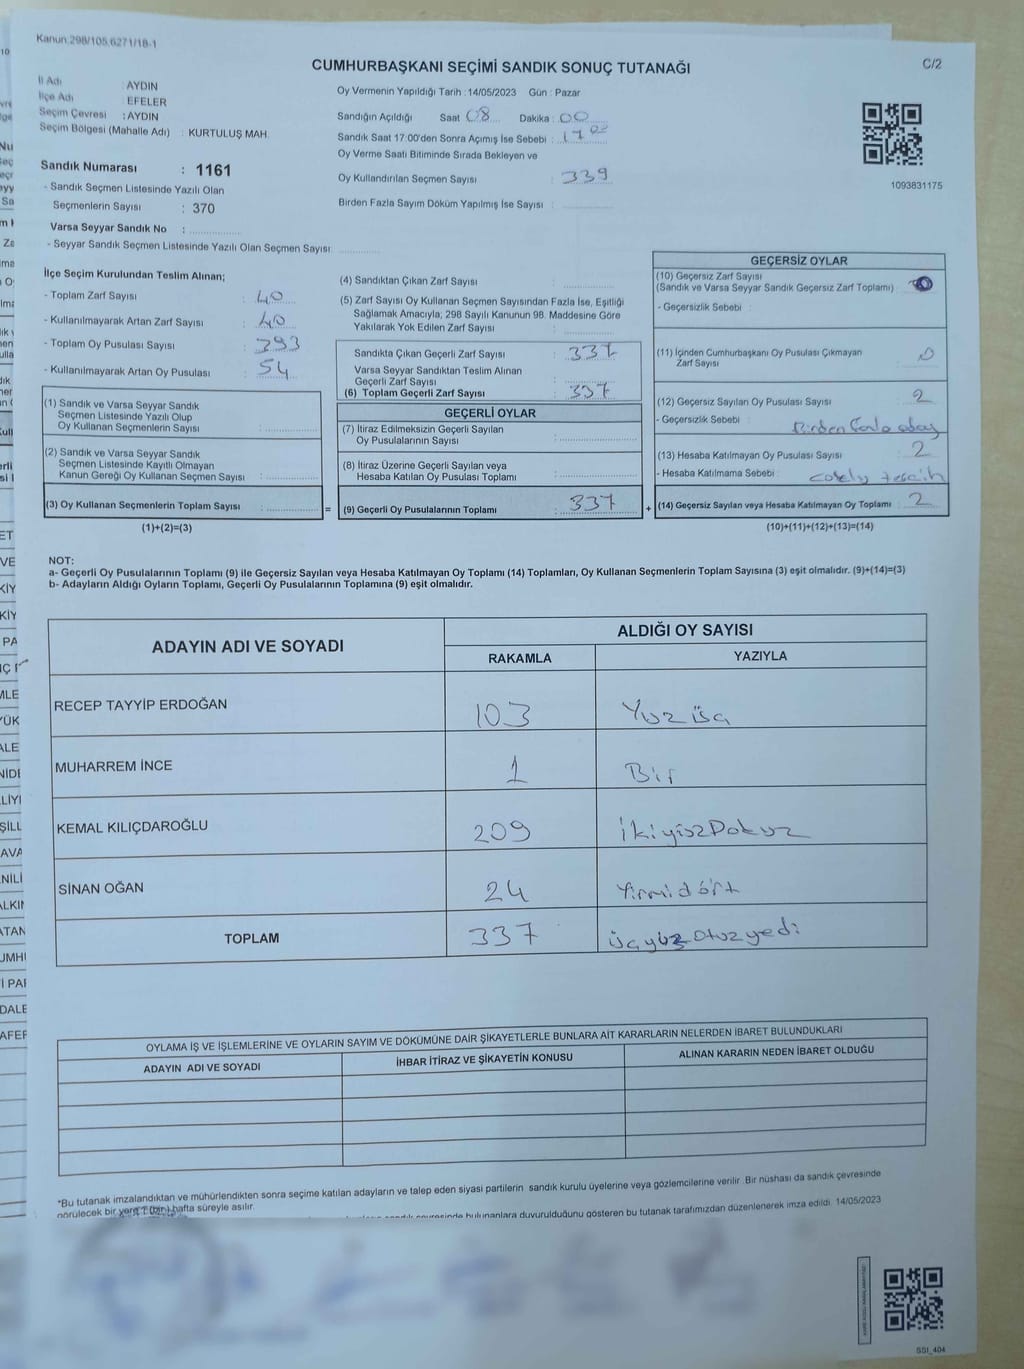 Kanun 298/105.6271/18-1
C/2
CUMHURBAŞKANI SEÇİMİ SANDIK SONUÇ TUTANAĞI
İl Adı : AYDIN
İlçe Adı : EFELER
Seçim Çevresi : AYDIN
Seçim Bölgesi (Mahalle Adı) : KURTULUŞ MAH.
Sandık Numarası : 1161
- Sandık Seçmen Listesinde Yazılı Olan
Seçmenlerin Sayısı : 370
Varsa Seyyar Sandık No :
- Seyyar Sandık Seçmen Listesinde Yazılı Olan Seçmen Sayısı:
Oy Vermenin Yapıldığı Tarih : 14/05/2023 Gün : Pazar
Sandığın Açıldığı Saat 08 Dakika : 00
Sandık Saat 17:00'den Sonra Açımış İse Sebebi : 17 00
Oy Verme Saati Bitiminde Sırada Bekleyen ve
Oy Kullandırılan Seçmen Sayısı : 339
Birden Fazla Sayım Döküm Yapılmış İse Sayısı :
1093831175
İlçe Seçim Kurulundan Teslim Alınan;
- Toplam Zarf Sayısı : 40
- Kullanılmayarak Artan Zarf Sayısı : 40
- Toplam Oy Pusulası Sayısı : 393
- Kullanılmayarak Artan Oy Pusulası : 54
(1) Sandık ve Varsa Seyyar Sandık
Seçmen Listesinde Yazılı Olup
Oy Kullanan Seçmenlerin Sayısı :
(2) Sandık ve Varsa Seyyar Sandık
Seçmen Listesinde Kayıtlı Olmayan
Kanun Gereği Oy Kullanan Seçmen Sayısı :
(3) Oy Kullanan Seçmenlerin Toplam Sayısı : =
(1)+(2)=(3)
(4) Sandıktan Çıkan Zarf Sayısı :
(5) Zarf Sayısı Oy Kullanan Seçmen Sayısından Fazla İse, Eşitliği
Sağlamak Amacıyla; 298 Sayılı Kanunun 98. Maddesine Göre
Yakılarak Yok Edilen Zarf Sayısı :
Sandıkta Çıkan Geçerli Zarf Sayısı : 337
Varsa Seyyar Sandıktan Teslim Alınan
Geçerli Zarf Sayısı :
(6) Toplam Geçerli Zarf Sayısı : 337
GEÇERLİ OYLAR
(7) İtiraz Edilmeksizin Geçerli Sayılan
Oy Pusulalarının Sayısı :
(8) İtiraz Üzerine Geçerli Sayılan veya
Hesaba Katılan Oy Pusulası Toplamı :
(9) Geçerli Oy Pusulalarının Toplamı : 337 +
GEÇERSİZ OYLAR
(10) Geçersiz Zarf Sayısı
(Sandık ve Varsa Seyyar Sandık Geçersiz Zarf Toplamı) : 0
- Geçersizlik Sebebi :
(11) İçinden Cumhurbaşkanı Oy Pusulası Çıkmayan
Zarf Sayısı : 0
(12) Geçersiz Sayılan Oy Pusulası Sayısı : 2
- Geçersizlik Sebebi : Birden fazla aday
(13) Hesaba Katılmayan Oy Pusulası Sayısı : 2
- Hesaba Katılmama Sebebi : tercih
(14) Geçersiz Sayılan veya Hesaba Katılmayan Oy Toplamı : 2
(10)+(11)+(12)+(13)=(14)
NOT:
a- Geçerli Oy Pusulalarının Toplamı (9) ile Geçersiz Sayılan veya Hesaba Katılmayan Oy Toplamı (14) Toplamları, Oy Kullanan Seçmenlerin Toplam Sayısına (3) eşit olmalıdır. (9)+(14)=(3)
b- Adayların Aldığı Oyların Toplamı, Geçerli Oy Pusulalarının Toplamına (9) eşit olmalıdır.
ADAYIN ADI VE SOYADI
ALDIĞI OY SAYISI
RAKAMLA YAZIYLA
RECEP TAYYİP ERDOĞAN 103 Yüz üç
MUHARREM İNCE 1 Bir
KEMAL KILIÇDAROĞLU 209 İkiyüz Dokuz
SİNAN OĞAN 24 Yirmidört
TOPLAM 337 Üçyüz Otuz yedi
OYLAMA İŞ VE İŞLEMLERİNE VE OYLARIN SAYIM VE DÖKÜMÜNE DAİR ŞİKAYETLERLE BUNLARA AİT KARARLARIN NELERDEN İBARET BULUNDUKLARI
ADAYIN ADI VE SOYADI İHBAR İTİRAZ VE ŞİKAYETİN KONUSU ALINAN KARARIN NEDEN İBARET OLDUĞU
*Bu tutanak imzalandıktan ve mühürlendikten sonra seçime katılan adayların ve talep eden siyasi partilerin sandık kurulu üyelerine veya gözlemcilerine verilir. Bir nüshası da sandık çevresinde
görülecek bir yere 1 (bir) hafta süreyle asılır.
bulunanlara duyurulduğunu gösteren bu tutanak tarafımızdan düzenlenerek imza edildi. 14/05/2023
SSI_404